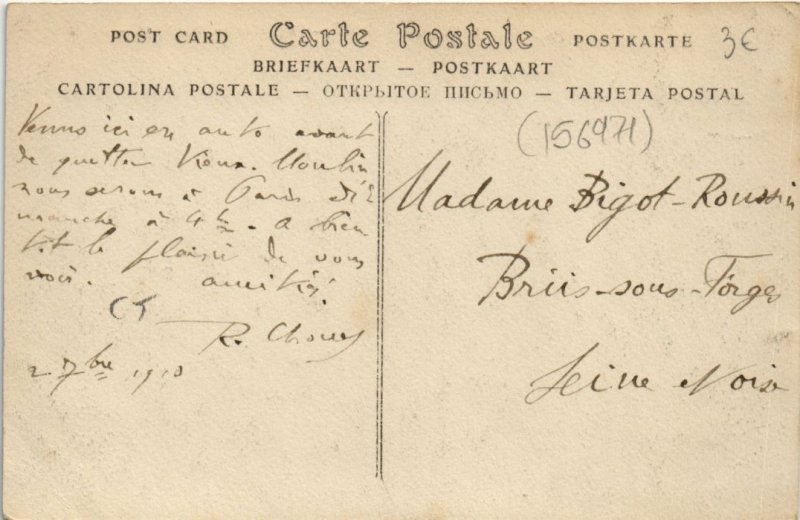 POST CARD Carte Postale POSTKARTE 3€
BRIEFKAART — POSTKAART
CARTOLINA POSTALE — ОТКРЫТОЕ ПИСЬМО — TARJETA POSTAL
(156971)
Venus ici en auto avant
de quitter Vieux-Moulin
nous serons à Paris di=
manche à 4h - a bien
tôt le plaisir de vous
voir. amitiés.
CT
R.
2 7bre 1910
Madame Bigot-Roussin
Briis-sous-Forges
Seine &Oise